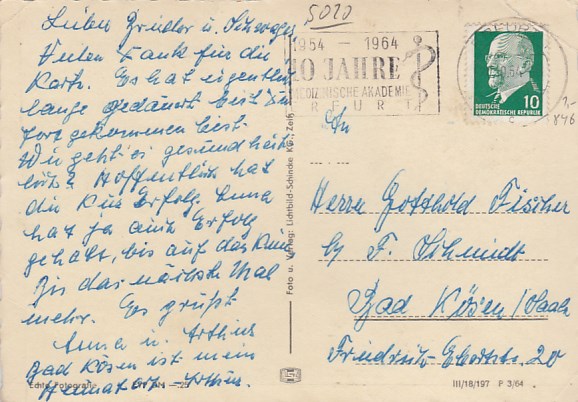 Lieber Bruder u. Schwager
Vielen Dank für die
Karte. Es hat eigentlich
lange gedauert bis Du
fortgekommen bist.
Wie geht es gesundheit-
lich? Hoffentlich hat
die Kur Erfolg. Anna
hat ja auch Erfolg
gehabt, bis auf das Knie
Bis das nächste Mal
mehr. Es grüßt
Anna u. Arthur
Bad Kösen ist mein
Heimatort - Arthur.
Echte Fotografie
Foto u. Verlag: Lichtbild-Schincke KG, Zeitz
5020
1954 — 1964
10 JAHRE
MEDIZINISCHE AKADEMIE
ERFURT
DEUTSCHE
DEMOKRATISCHE REPUBLIK
10
1,-
846
An
Herrn Gotthold Fischer
by F. Schmidt
Bad Kösen/Saale
Friedrich-Ebertstr. 20
III/18/197 P 3/64